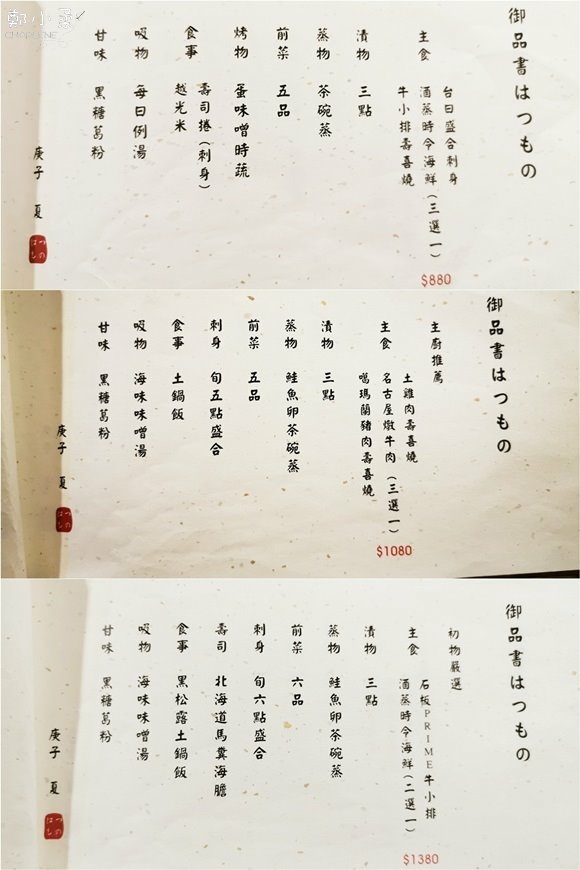 鄭小柔
CHARLENE
御品書はつもの
主食
台日盛合刺身
酒蒸時令海鮮(三選一)
牛小排壽喜燒
$880
漬物 三點
蒸物 茶碗蒸
前菜 五品
烤物 蛋味噌時蔬
食事 壽司捲(刺身)
越光米
吸物 每日例湯
甘味 黑糖葛粉
庚子 夏
はつもの
御品書はつもの
主廚推薦
主食
土雞肉壽喜燒
名古屋燉牛肉(三選一)
噶瑪蘭豬肉壽喜燒
$1080
漬物 三點
蒸物 鮭魚卵茶碗蒸
前菜 五品
刺身 旬五點盛合
食事 土鍋飯
吸物 海味味噌湯
甘味 黑糖葛粉
庚子 夏
はつもの
御品書はつもの
初物嚴選
主食
石板PRIME牛小排
酒蒸時令海鮮(二選一)
$1380
漬物 三點
蒸物 鮭魚卵茶碗蒸
前菜 六品
刺身 旬六點盛合
壽司 北海道馬糞海膽
食事 黑松露土鍋飯
吸物 海味味噌湯
甘味 黑糖葛粉
庚子 夏
はつもの